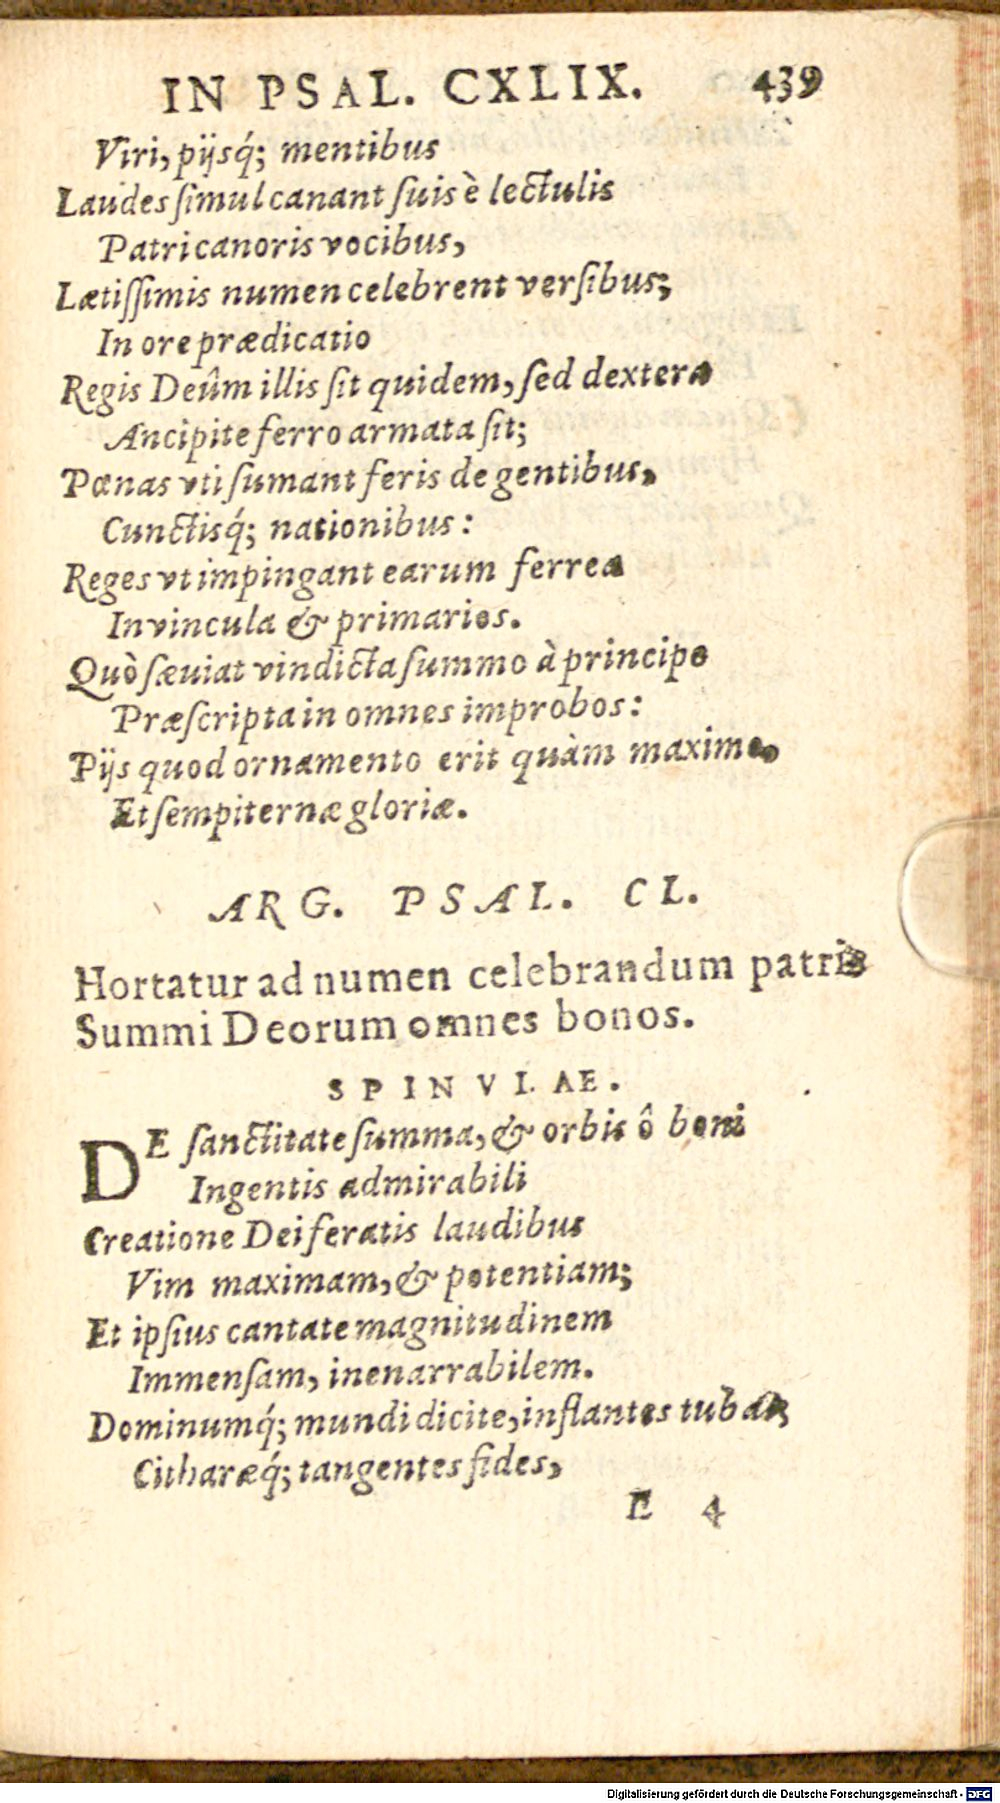 IN PSAL. CXLIX. 439
Viri, pijsq́; mentibus
Laudes ſimul canant ſuis è lectulis
Patri canoris vocibus,
Lætiſſimis numen celebrent verſibus;
In ore prædicatio
Regis Deûm illis ſit quidem, ſed dextera
Ancipite ferro armata ſit;
Pœnas vti ſumant feris de gentibus,
Cunctisq́; nationibus:
Reges vt impingant earum ferrea
In vincula & primarios.
Quò sæuiat vindicta ſummo à principe
Præſcripta in omnes improbos:
Pijs quod ornamento erit quàm maximo,
Et ſempiternæ gloriæ.
ARG. PSAL. CL.
Hortatur ad numen celebrandum patris
Summi Deorum omnes bonos.
SPINVLAE.
DE ſanctitate ſumma, & orbis ô boni
Ingentis admirabili
Creatione Dei feratis laudibus
Vim maximam, & potentiam;
Et ipſius cantate magnitudinem
Immenſam, inenarrabilem.
Dominumq́; mundi dicite, inflantes tubas,
Citharæq́; tangentes fides,
E 4
Digitalisierung gefördert durch die Deutsche Forschungsgemeinschaft - DFG